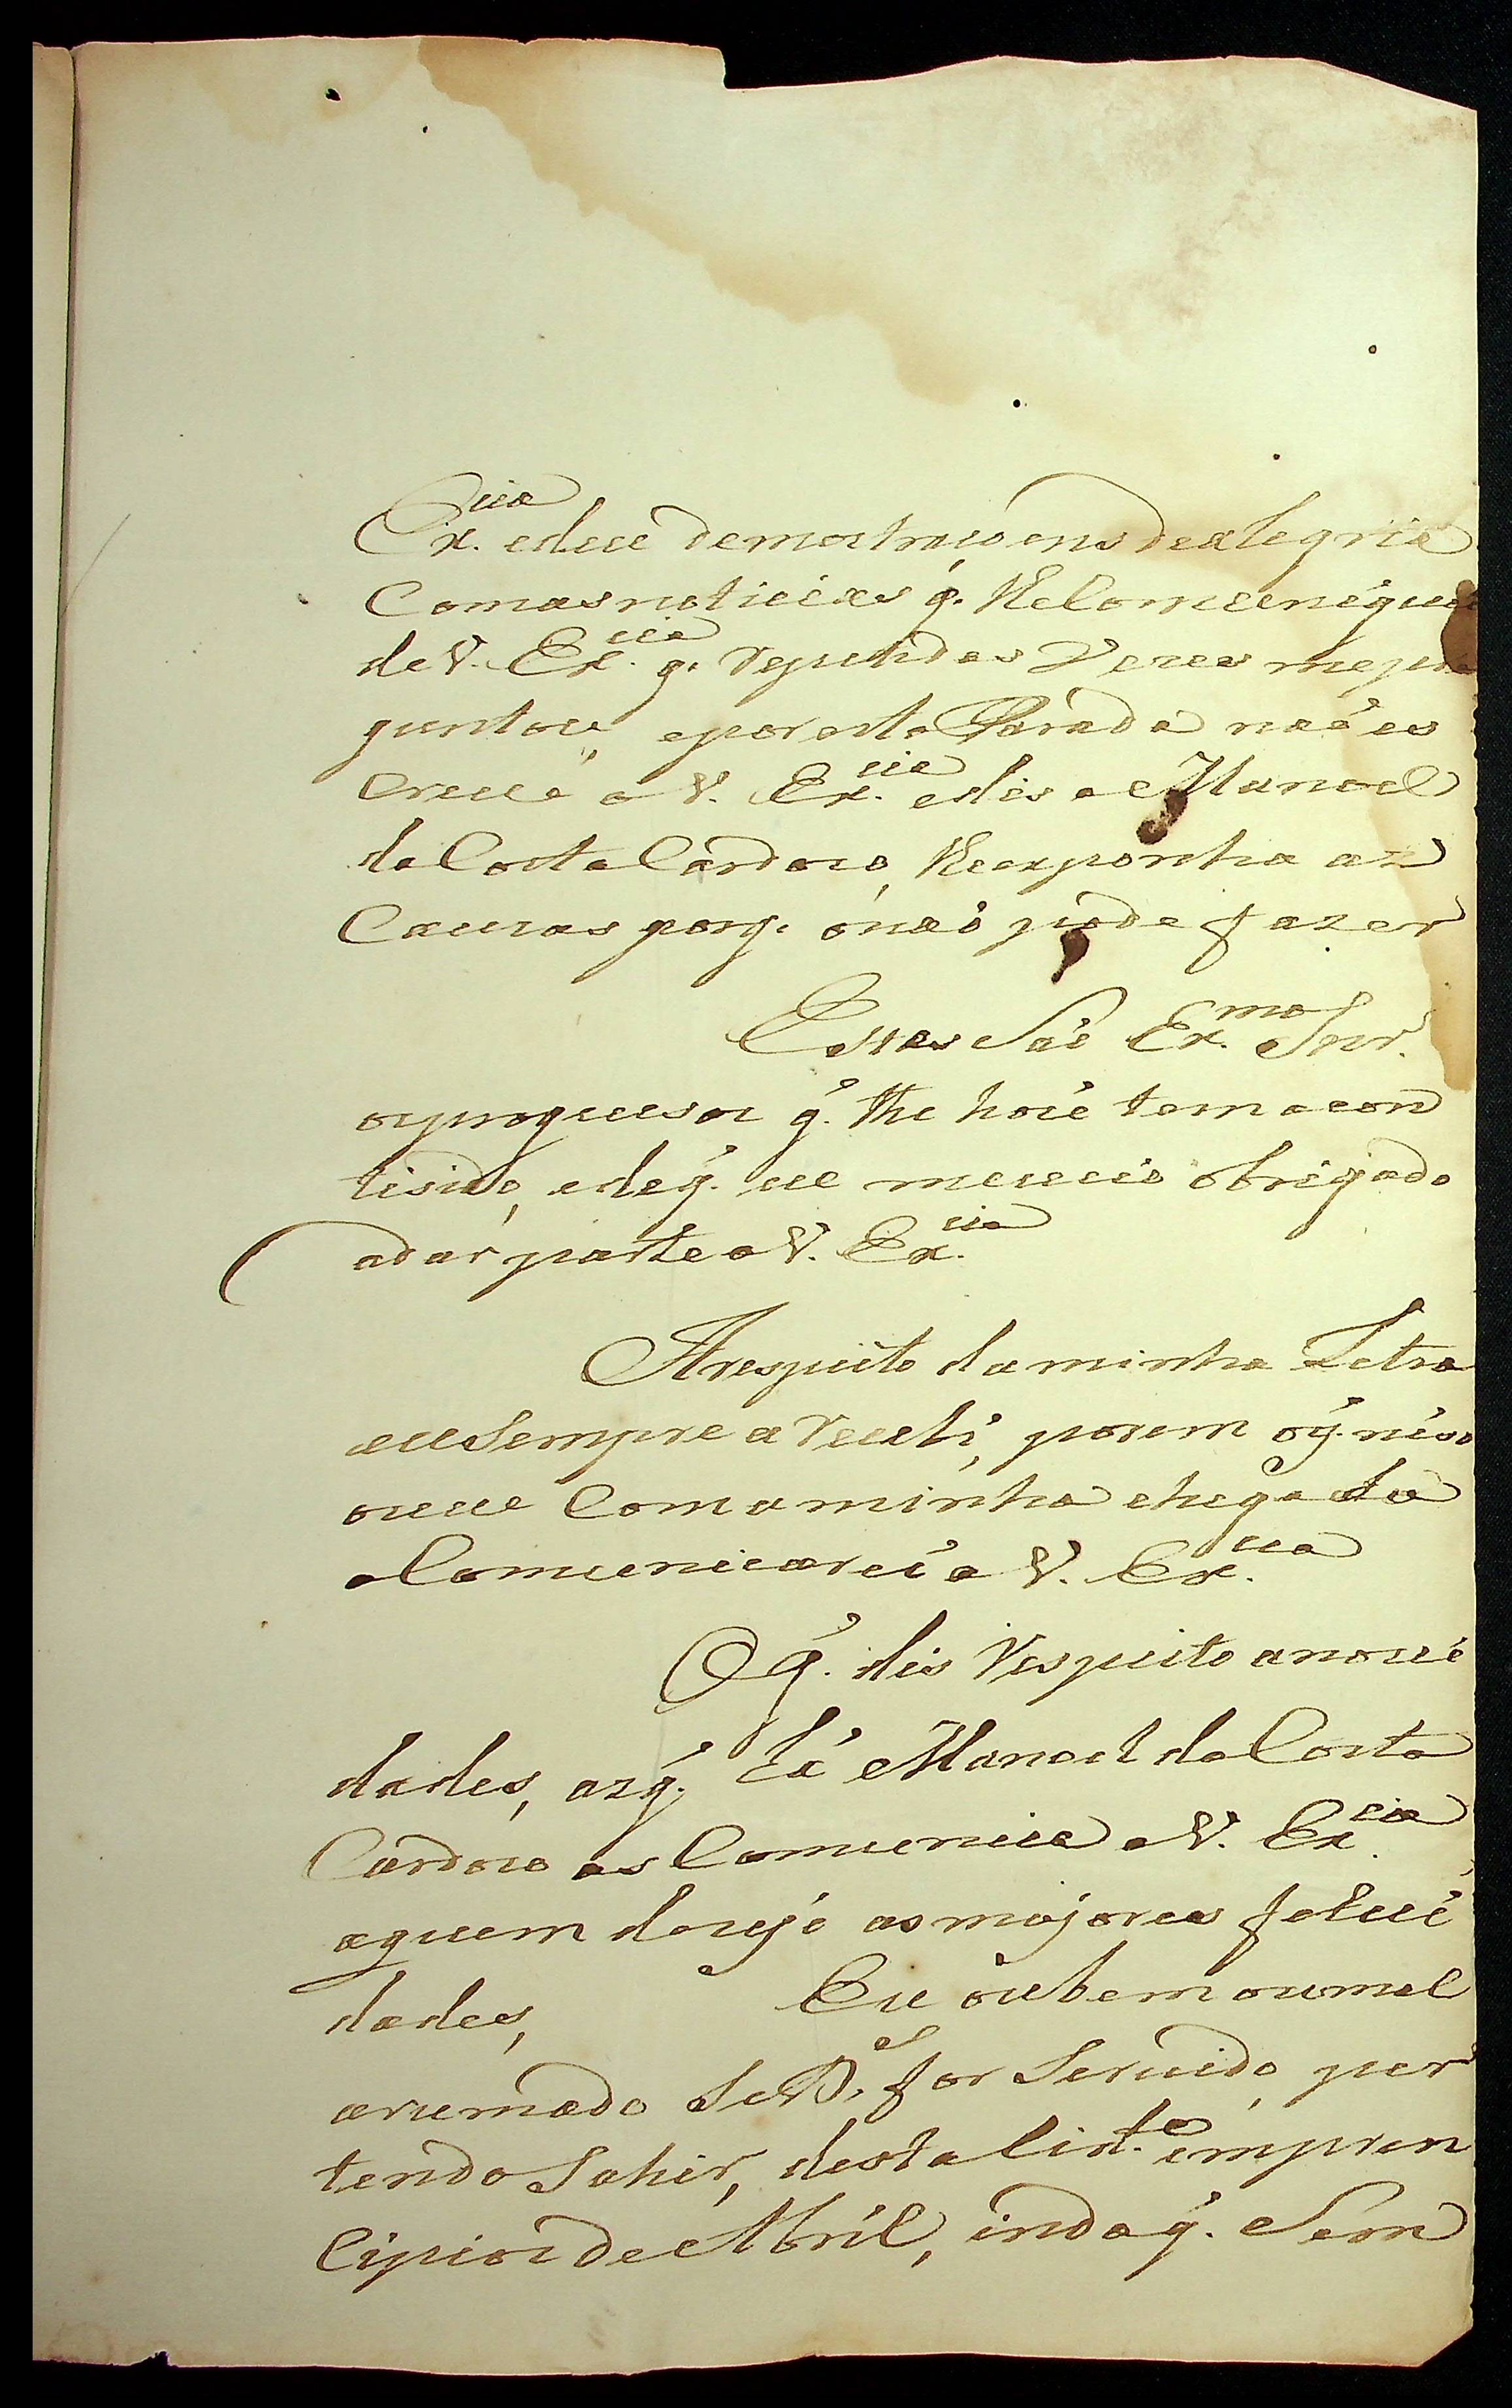 Ex.cia edeu demostraçoens dealegria
Comasnoticias q. lhe Comuniquei
de V. Ex.cia q. repitidas Vezes mepre
guntou, eporesta Parada naõ es
creve a V. Ex.cia edis a Manoel
da Costa Cardozo, lhe exponha as
Cauzas porq. onaõ pode fazer
Estes Saõ Ex.mo Snr.
osprogresos q. the hoie tem acon
tisido, edeq. eu me vejo obrigado
adar parte a V. Ex.cia
Arespeito daminha Letra
eusempre arecebi, porem oq. niso
ouue Comaminha chegada
aComunicarei a V. Ex.cia
Oq. dis respeito anovi
dades, asq. há Manoel da Costa
Cardozo as Comunica a V. Ex.cia
aquem dezejo asmajores felici
dades, Eu oubem oumal
arumado Se D.s for Servido, per
tendo Sahir, desta Cid.e emprin
Cipios de Abril, indaq. Sem